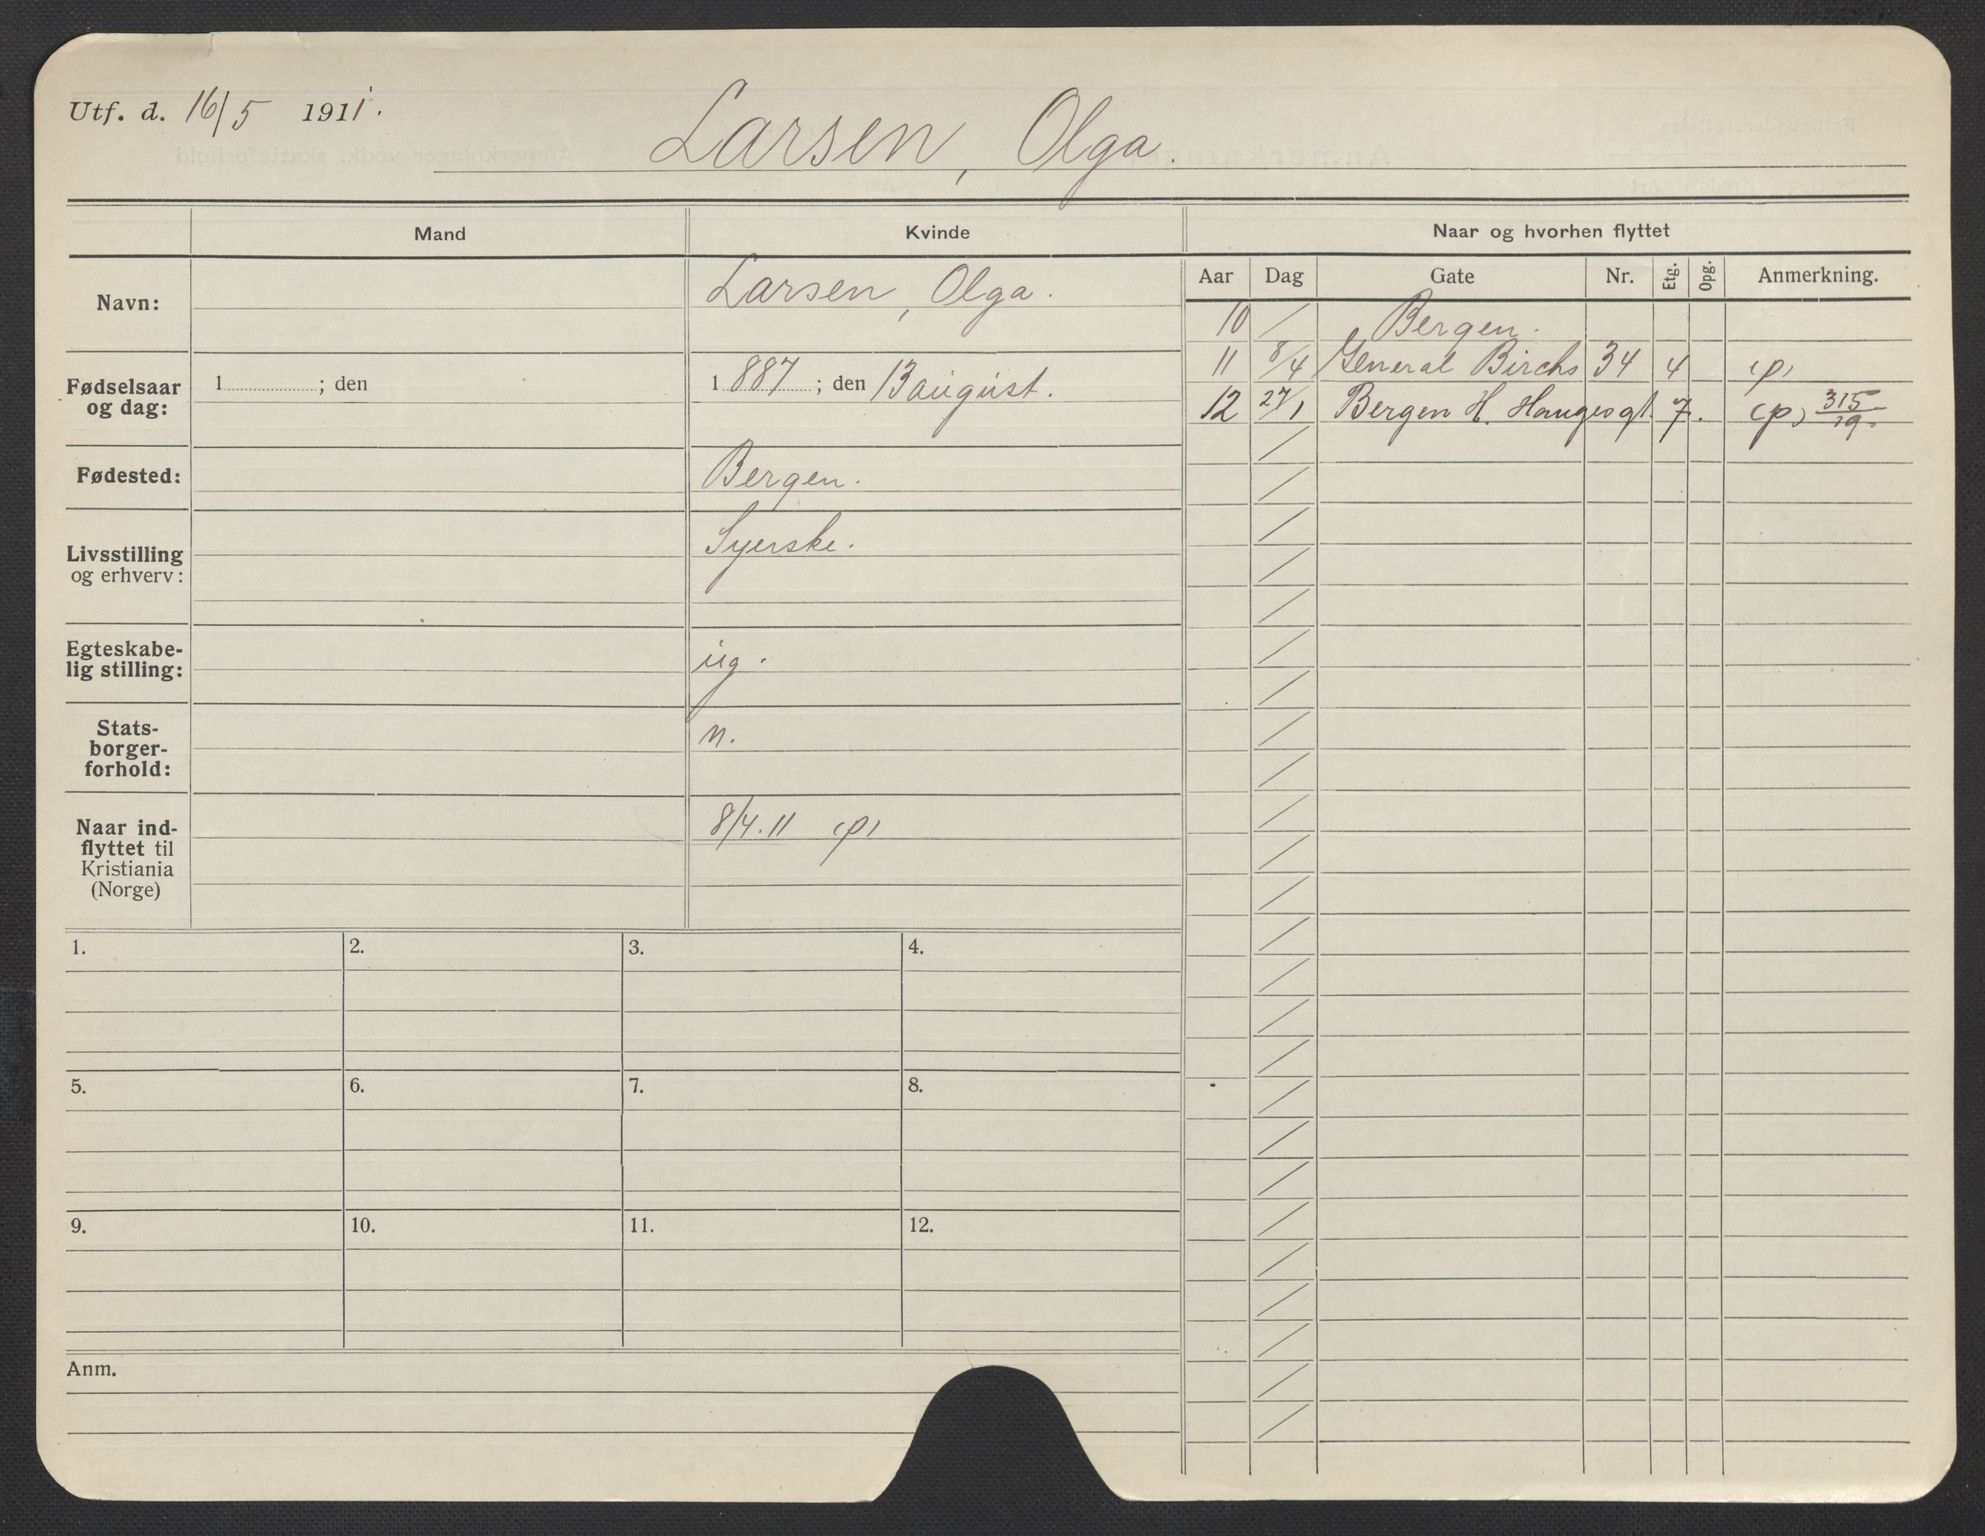 Utf. d. 16/5 1911.
Larsen, Olga.
Mand
Kvinde
Naar og hvorhen flyttet
Aar Dag Gate Nr. Etg. Opg. Anmerkning.
Navn: Larsen, Olga.
Fødselsaar
og dag:
1 ; den
1 887 ; den 13 august.
Fødested: Bergen.
Livsstilling
og erhverv:
Syerske.
Egteskabe-
lig stilling:
ug.
Stats-
borger-
forhold:
n.
Naar ind-
flyttet til
Kristiania
(Norge)
8/4.11 (p)
10 / Bergen.
11 8/4 General Birchs 34 4 (p)
12 27/1 Bergen H. Haugesgt. 7. (p) 315/19.
1. 2. 3. 4.
5. 6. 7. 8.
9. 10. 11. 12.
Anm.